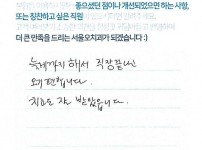 좋으셨던 점이나 개선되었으면 하는 사항,
또는 칭찬하고 싶은 직원
더 큰 만족을 드리는 서울오치과가 되겠습니다 :)
늦게까지 해서 직장끝나고
왜 편합니다.
치료도 잘 받았습니다.